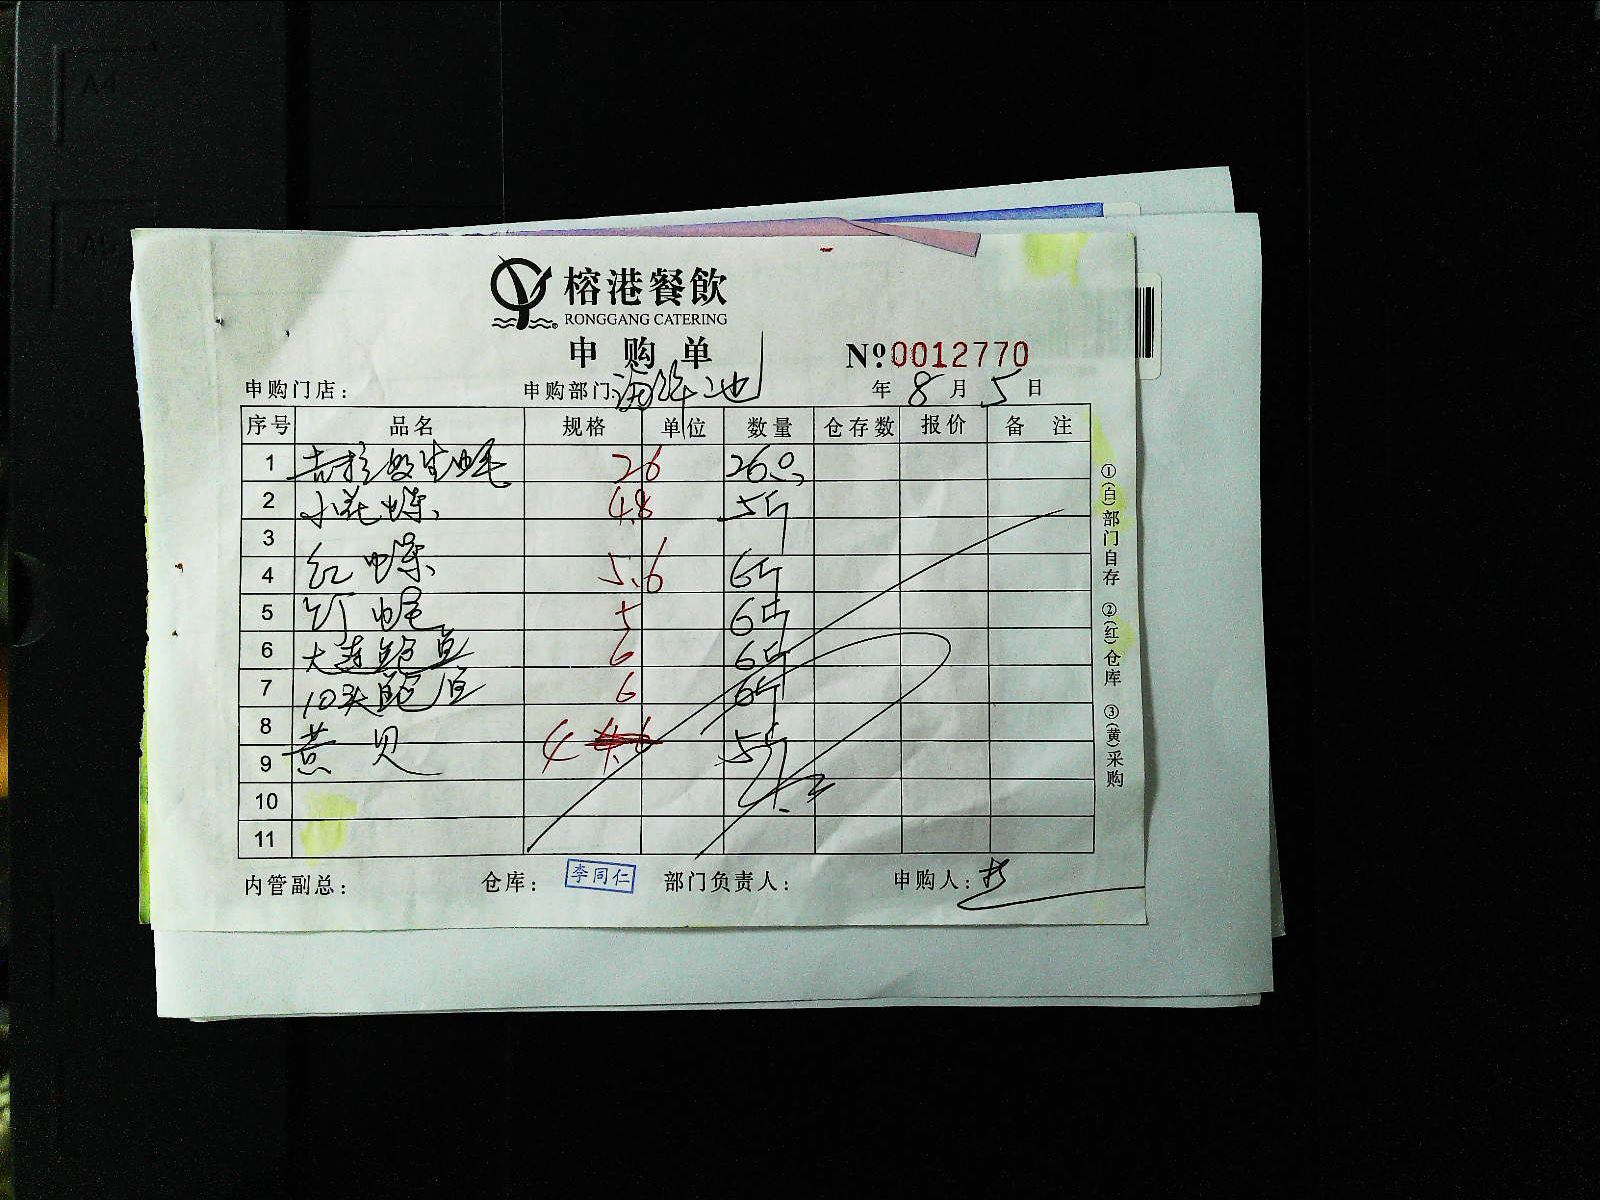 榕港餐飲
RONGGANG CATERING
申购单
№0012770
申购门店： 申购部门：海鲜池 年 8 月 5 日
序号 品名 规格 单位 数量 仓存数 报价 备注
1 吉拉多生蚝 26 26只
2 小花螺 4.8 5斤
3
4 红螺 5.6 6斤
5 6斤
6 大连鲍鱼 6 6斤
7 10头鲍鱼 6 6斤
8
9 黄贝 4 5斤
10
11
①(白)部门自存 ②(红)仓库 ③(黄)采购
内管副总： 仓库： 李同仁 部门负责人： 申购人：